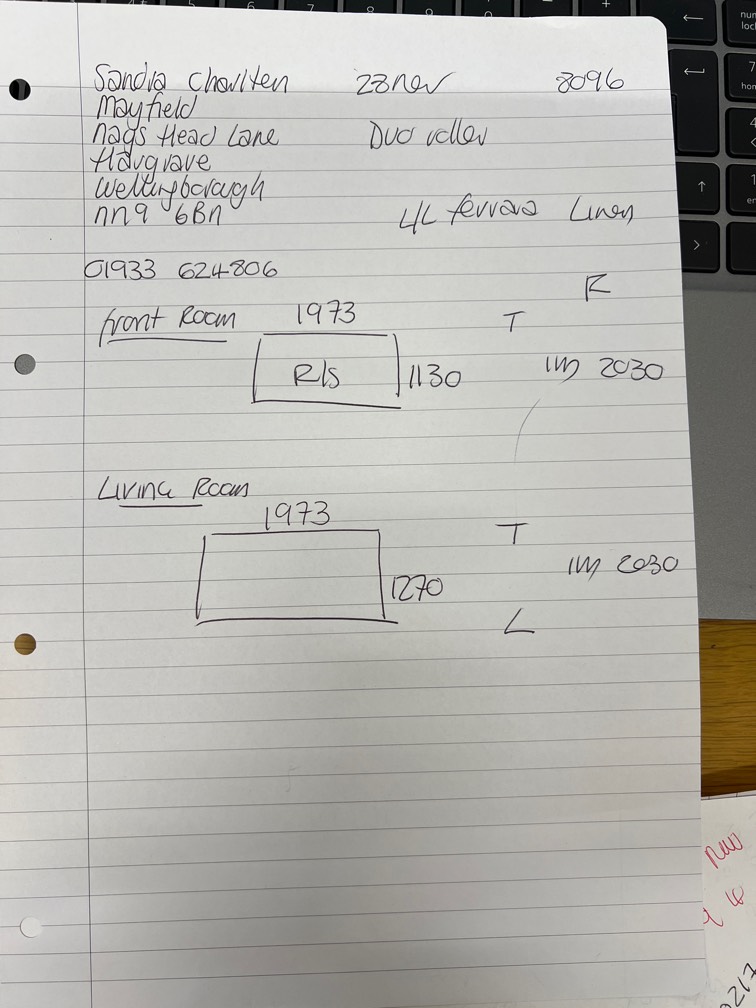 Sandra Charlten 28 nov 8096
Mayfield
nags Head Lane Duo roller
Hargrave
Wellingborough
nn9 6Bn LL ferrara Linen
01933 624806
R
front Room 1973 T
R/s 1130 2030
Living Room
1973 T
1270 2030
L
new